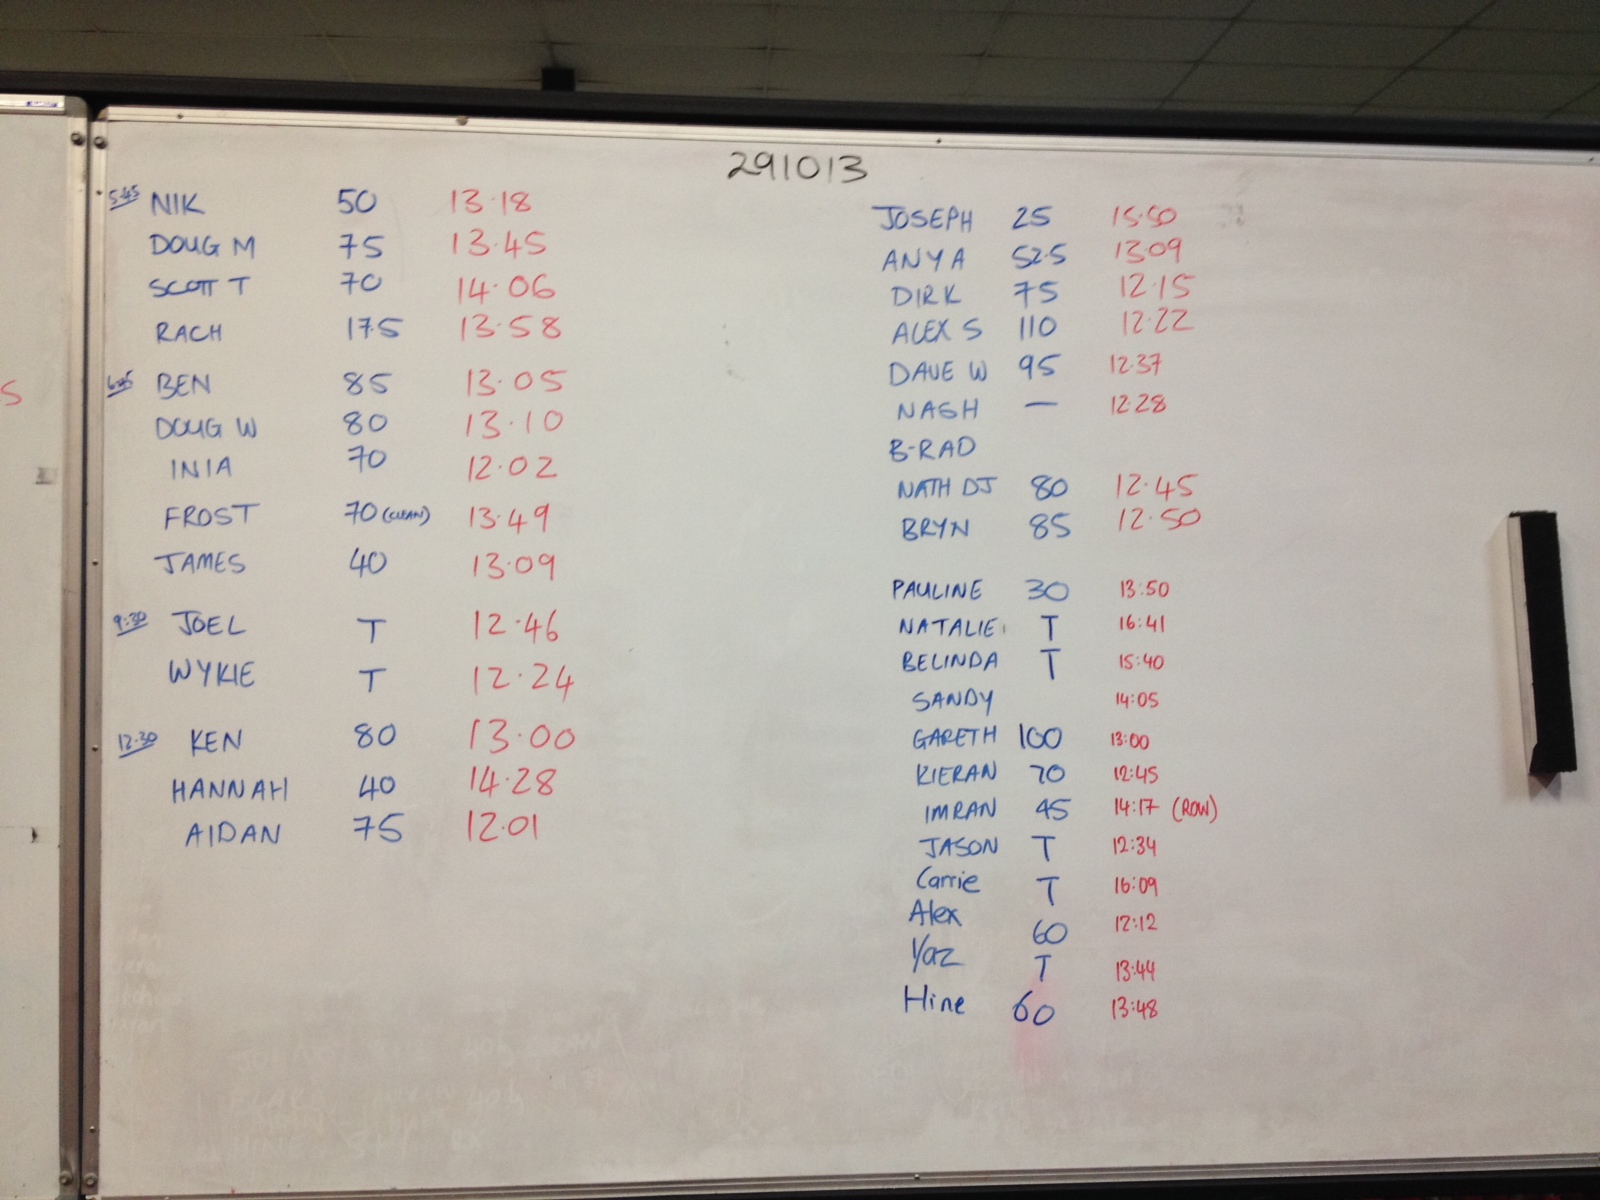 291013
5:45 NIK 50 13.18
DOUG M 75 13.45
SCOTT T 70 14.06
RACH 17.5 13.58
6:45 BEN 85 13.05
DOUG W 80 13.10
INIA 70 12.02
FROST 70 (CLEAN) 13.49
JAMES 40 13.09
9:30 JOEL T 12.46
WYKIE T 12.24
12.30 KEN 80 13.00
HANNAH 40 14.28
AIDAN 75 12.01
JOSEPH 25 15.50
ANYA 52.5 13.09
DIRK 75 12.15
ALEX S 110 12.22
DAVE W 95 12.37
NASH — 12.28
B-RAD
NATH DJ 80 12.45
BRYN 85 12.50
PAULINE 30 13:50
NATALIE T 16:41
BELINDA T 15:40
SANDY 14:05
GARETH 100 13:00
KIERAN 70 12:45
IMRAN 45 14:17 (ROW)
JASON T 12:34
Carrie T 16:09
Alex 60 12:12
Yaz T 13:44
Hine 60 13:48